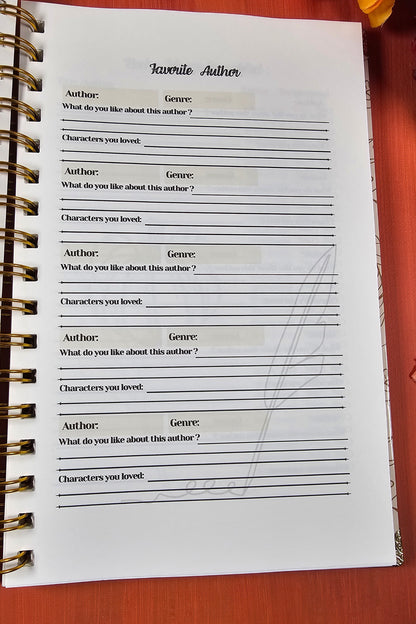 Favorite Author
Author: Genre:
What do you like about this author ?
Characters you loved:
Author: Genre:
What do you like about this author ?
Characters you loved:
Author: Genre:
What do you like about this author ?
Characters you loved:
Author: Genre:
What do you like about this author ?
Characters you loved:
Author: Genre:
What do you like about this author ?
Characters you loved: